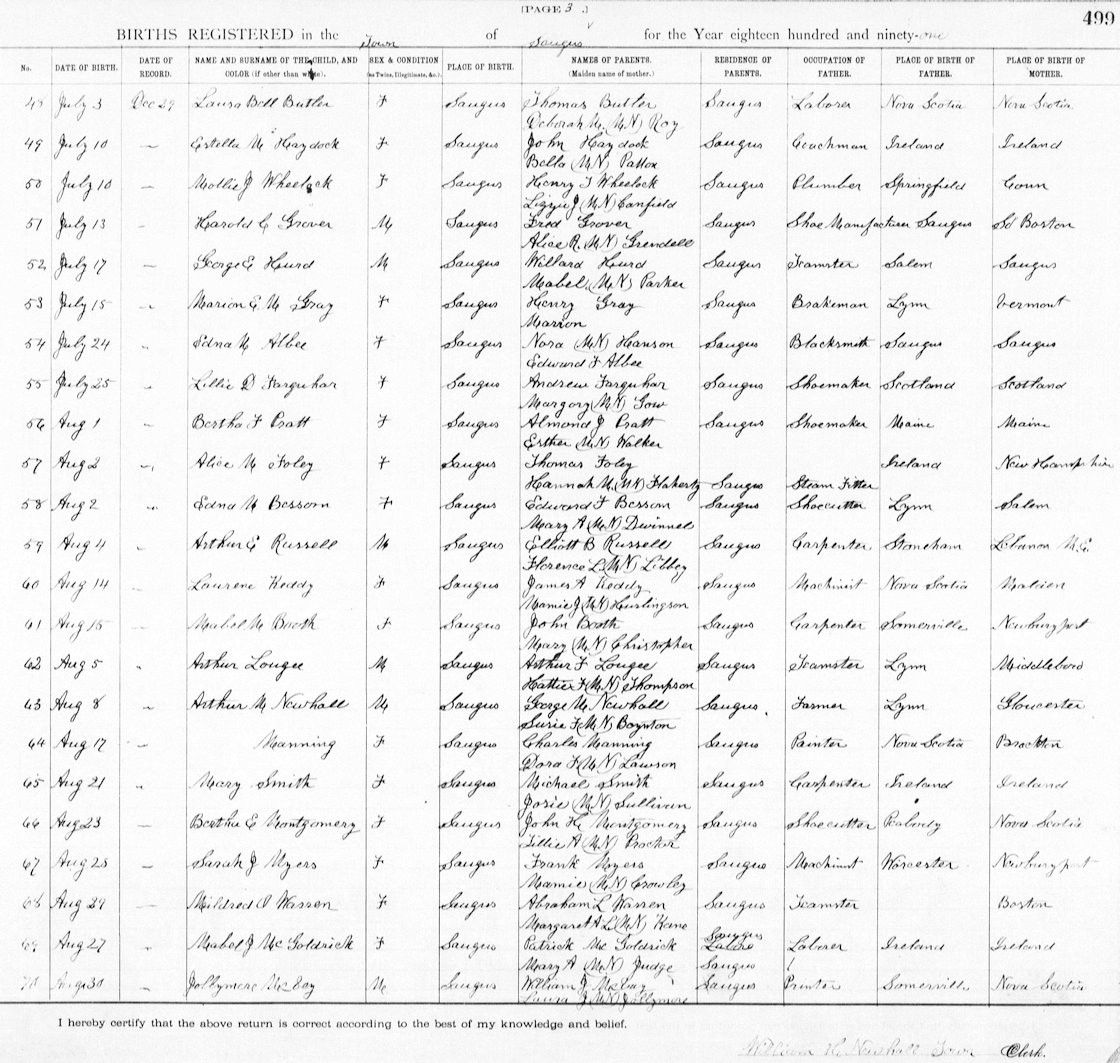 [PAGE 3 .]
499
BIRTHS REGISTERED in the Town of Saugus for the Year eighteen hundred and ninety-one
No. DATE OF BIRTH. DATE OF RECORD. NAME AND SURNAME OF THE CHILD, AND COLOR (if other than white). SEX & CONDITION (as Twins, Illegitimate, &c.). PLACE OF BIRTH. NAMES OF PARENTS. (Maiden name of mother.) RESIDENCE OF PARENTS. OCCUPATION OF FATHER. PLACE OF BIRTH OF FATHER. PLACE OF BIRTH OF MOTHER.
48 July 3 Dec 29 Laura Bell Butler F Saugus Thomas Butler Saugus Laborer Nova Scotia Nova Scotia
Deborah M. (MN) Roy
49 July 10 " Estella M Haydock F Saugus John Haydock Saugus Coachman Ireland Ireland
Bella (MN) Patton
50 July 10 " Mollie J Wheelock F Saugus Henry T Wheelock Saugus Plumber Springfield Conn
Lizzie J (MN) Canfield
51 July 13 " Harold C Grover M Saugus Fred Grover Saugus Shoe Manufacturer Saugus So Boston
Alice R. (MN) Grendell
52 July 17 " George E Hurd M Saugus Willard Hurd Saugus Teamster Salem Saugus
Mabel (MN) Parker
53 July 15 " Marion E M Gray F Saugus Henry Gray Saugus Brakeman Lynn Vermont
Marion
54 July 24 " Edna M Albee F Saugus Nora (MN) Hanson Saugus Blacksmith Saugus Saugus
Edward F Albee
55 July 25 " Lillie D Farquhar F Saugus Andrew Farquhar Saugus Shoemaker Scotland Scotland
Margory (MN) Gow
56 Aug 1 " Bertha F Pratt F Saugus Almond J Pratt Saugus Shoemaker Maine Maine
Esther (MN) Walker
57 Aug 2 " Alice M Foley F Saugus Thomas Foley Ireland New Hampshire
Hannah M. (MN) Flaherty Saugus Steam Fitter
58 Aug 2 " Edna M Bessom F Saugus Edward F Bessom Saugus Shoecutter Lynn Salem
Mary A (MN) Dwinnel
59 Aug 4 " Arthur E Russell M Saugus Elliott B Russell Saugus Carpenter Stoneham Lebanon M.E.
Florence L. (MN) Libbey
60 Aug 14 " Laurene Keddy F Saugus James A Keddy Saugus Machinist Nova Scotia Malden
Mamie J (MN) Hurlingson
61 Aug 15 " Mabel M Booth F Saugus John Booth Saugus Carpenter Somerville Newburyport
Mary (MN) Christopher
62 Aug 5 " Arthur Lougee M Saugus Arthur F Lougee Saugus Teamster Lynn Middleboro
Hattie F (MN) Thompson
63 Aug 8 " Arthur M Newhall M Saugus George M Newhall Saugus Farmer Lynn Gloucester
Susie F (MN) Boynton
64 Aug 17 " Manning F Saugus Charles Manning Saugus Painter Nova Scotia Brockton
Dora F (MN) Lawson
65 Aug 21 " Mary Smith F Saugus Michael Smith Saugus Carpenter Ireland Ireland
Josie (MN) Sullivan
66 Aug 23 " Bertha E Montgomery F Saugus John H. Montgomery Saugus Shoecutter Peabody Nova Scotia
Tillie A (MN) Proctor
67 Aug 25 " Sarah J Myers F Saugus Frank Myers Saugus Machinist Worcester Newburyport
Mamie (MN) Crowley
68 Aug 29 " Mildred O Warren F Saugus Abraham L Warren Saugus Teamster Boston
Margaret A L. (MN) Kane
69 Aug 27 " Mabel J McGoldrick F Saugus Patrick McGoldrick Saugus Laborer Ireland Ireland
Mary A (MN) Judge Saugus
70 Aug 30 " Jollymore McKay M Saugus William J McKay Saugus Printer Somerville Nova Scotia
Laura J (MN) Jollymore
I hereby certify that the above return is correct according to the best of my knowledge and belief.
William H. Newhall Town Clerk.